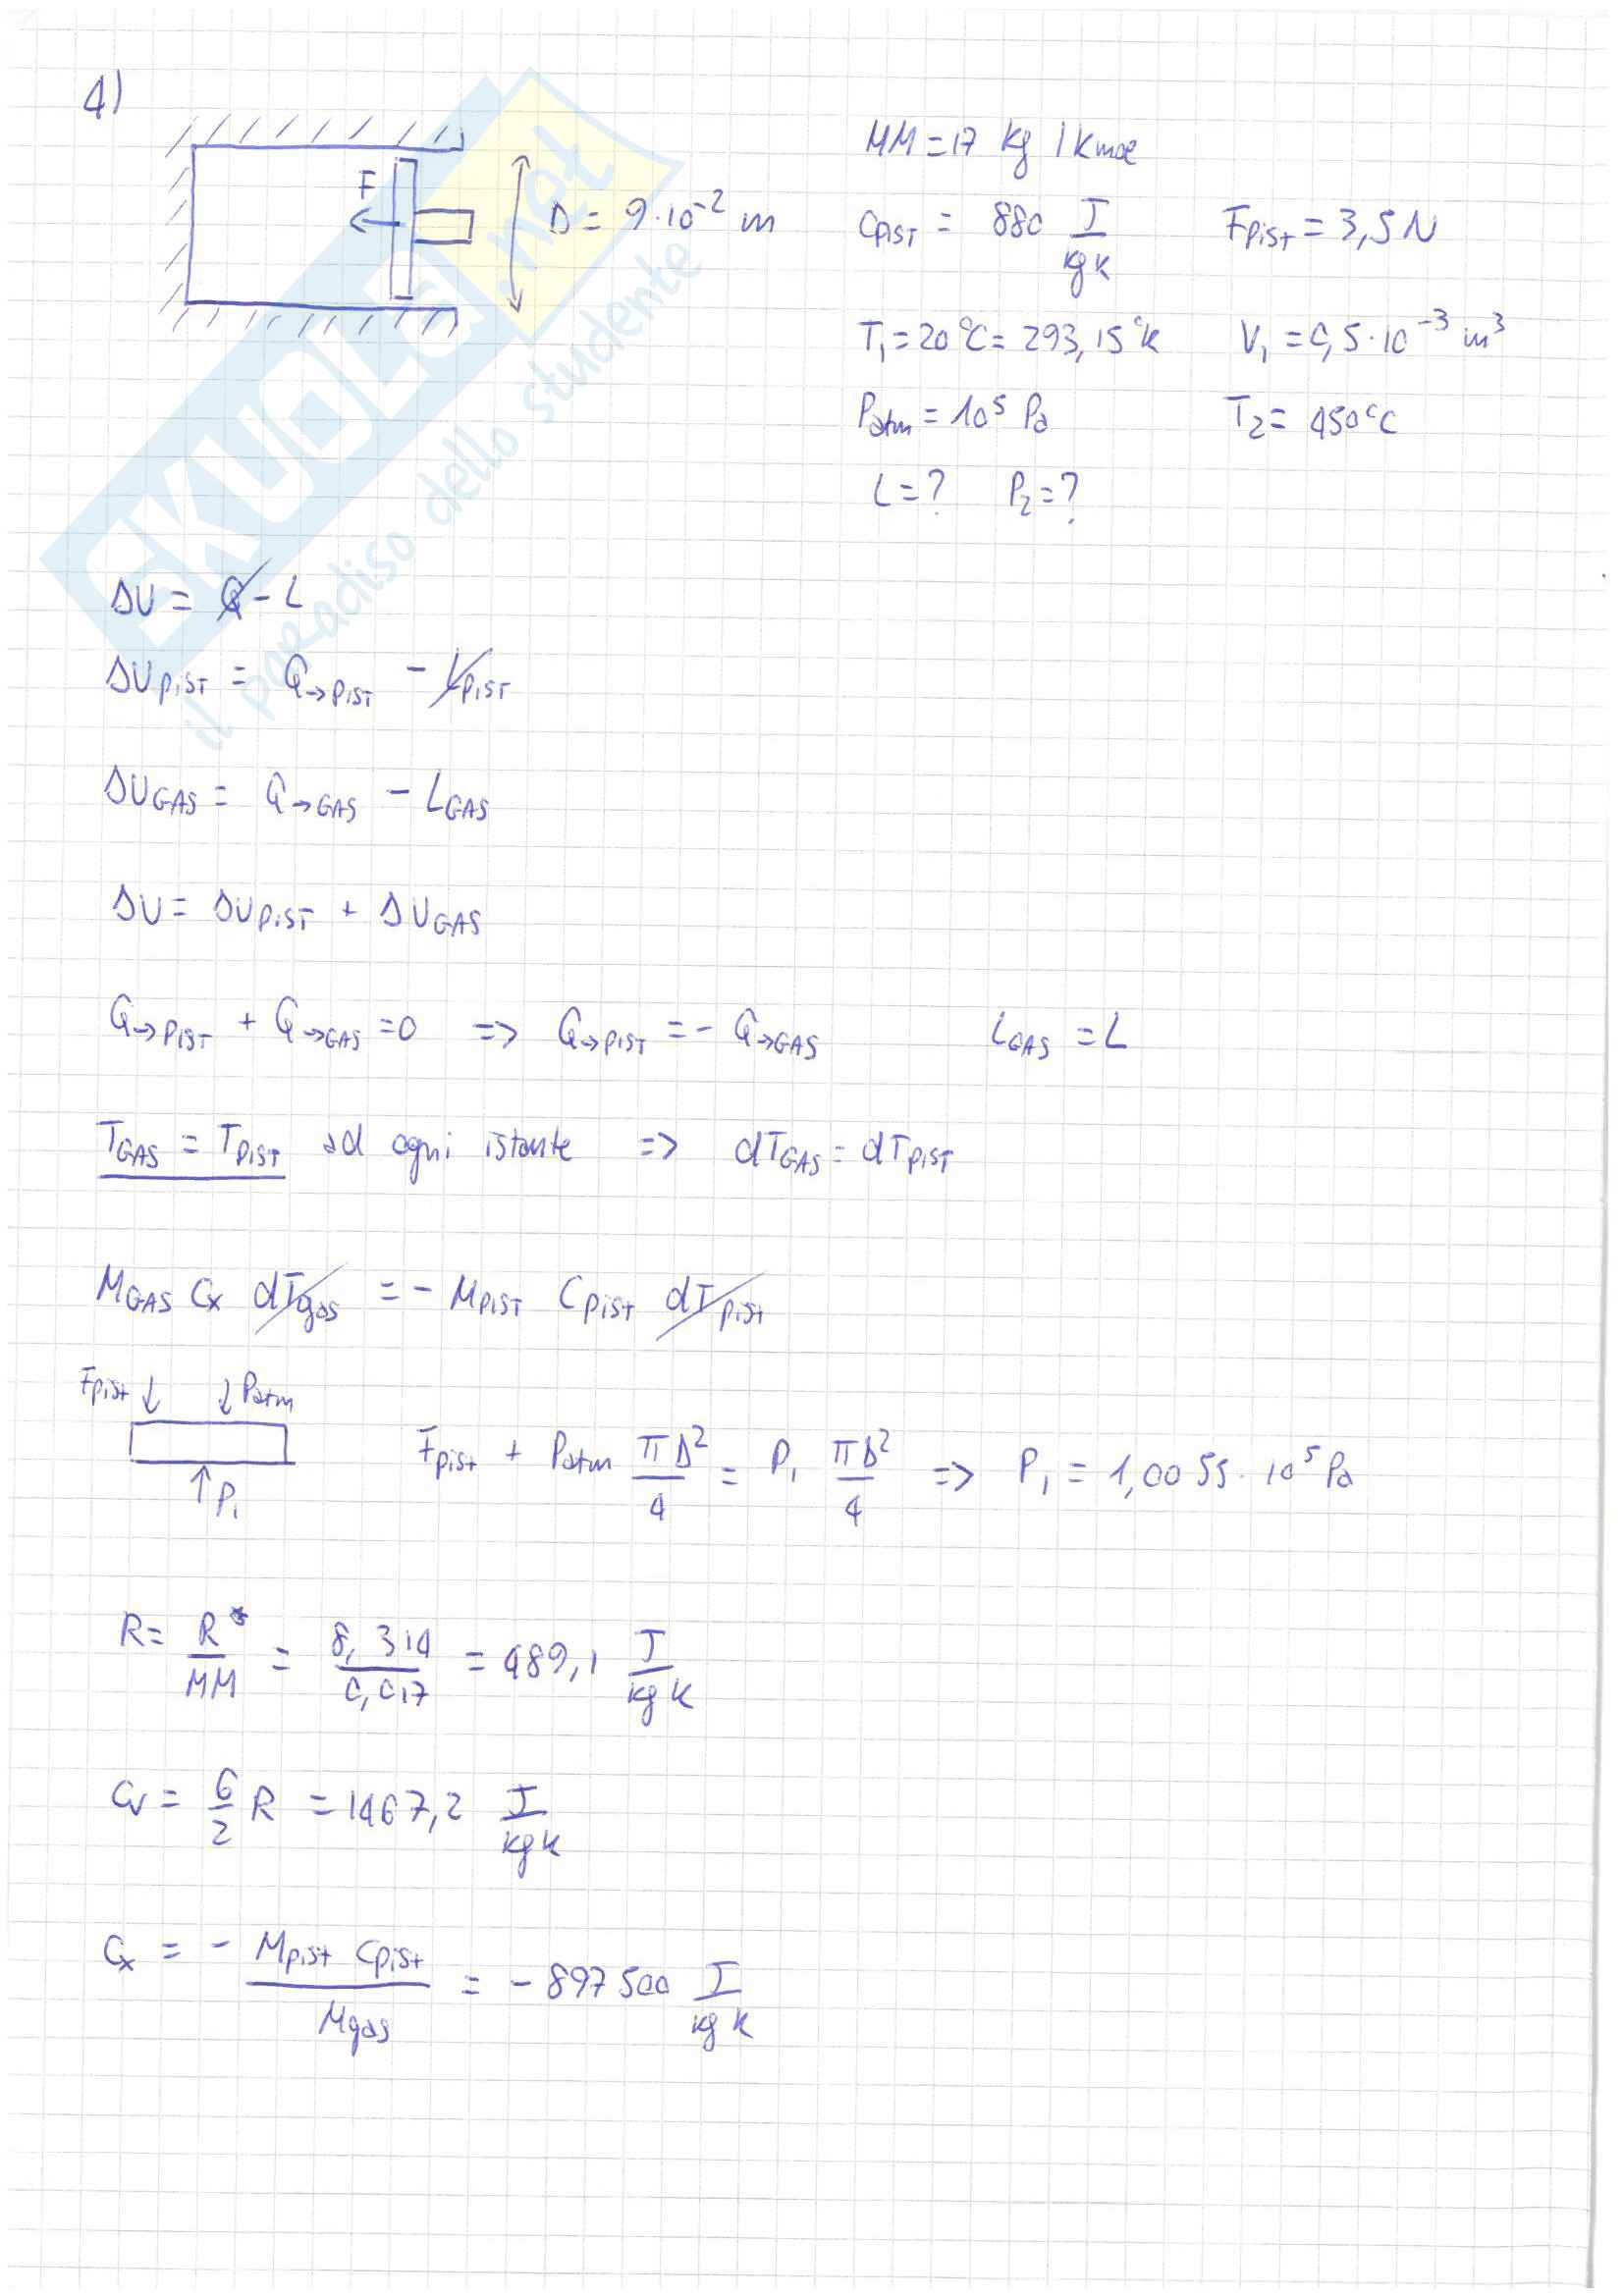 4)
MM = 17 kg / kmol
F
D = 9·10⁻² m
C_PIST = 880 J/kg K F_PIST = 3,5 N
T₁ = 20°C = 293,15 °K V₁ = 0,5·10⁻³ m³
P_atm = 10⁵ Pa T₂ = 450°C
L = ? P₂ = ?
SKUOLA.net
il paradiso dello studente
ΔU = Q - L
ΔU_PIST = Q→PIST - L_PIST
ΔU_GAS = Q→GAS - L_GAS
ΔU = ΔU_PIST + ΔU_GAS
Q→PIST + Q→GAS = 0 => Q→PIST = - Q→GAS L_GAS = L
T_GAS = T_PIST ad ogni istante => dT_GAS = dT_PIST
M_GAS Cx dT_gas = - M_PIST C_PIST dT_pist
F_pist ↓ ↓ P_atm
F_pist + P_atm πD²/4 = P₁ πD²/4 => P₁ = 1,0055·10⁵ Pa
↑ P₁
R = R*/MM = 8,314/0,017 = 489,1 J/kg K
Cv = 6/2 R = 1467,2 J/kg K
Cx = - M_pist C_pist / M_gas = - 897500 J/kg K